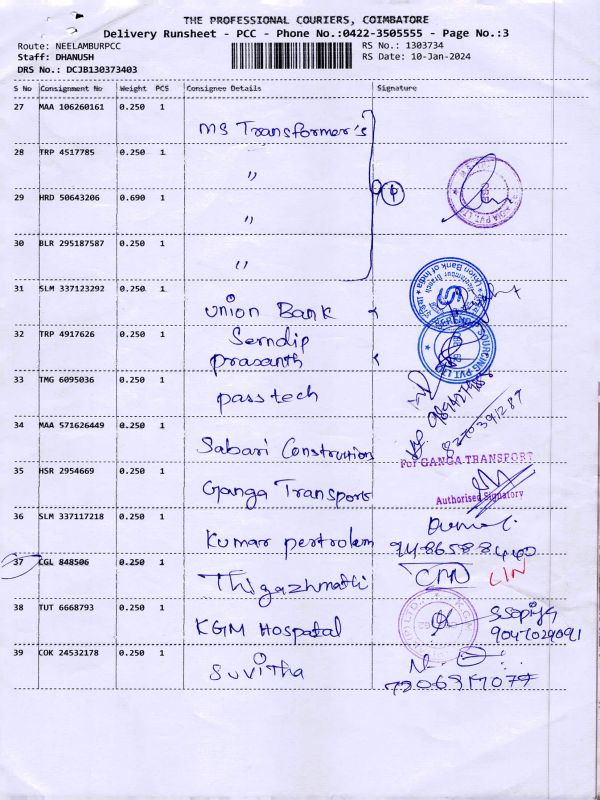 THE PROFESSIONAL COURIERS, COIMBATORE
Delivery Runsheet - PCC - Phone No.:0422-3505555 - Page No.:3
Route: NEELAMBURPCC RS No.: 1303734
Staff: DHANUSH RS Date: 10-Jan-2024
DRS No.: DCJB130373403
S No Consignment No Weight PCS Consignee Details Signature
27 MAA 106260161 0.250 1 MS Transformer's
28 TRP 4517785 0.250 1 "
29 HRD 50643206 0.690 1 " 4
30 BLR 295187587 0.250 1 "
31 SLM 337123292 0.250 1 Union Bank
Union Bank of India
32 TRP 4917626 0.250 1 Serndip
prasanth
SOURCING PVT LTD
33 TMG 6095036 0.250 1 passtech
34 MAA 571626449 0.250 1 Sabari Constructions
8270391287
35 HSR 2954669 0.250 1 Ganga Transports
For GANGA TRANSPORT
Authorised Signatory
36 SLM 337117218 0.250 1 Kumar pertrolem
9486588440
37 CGL 848506 0.250 1 Thigazhmathi
LIN
38 TUT 6668793 0.250 1 KGM Hospatal
9047029091
39 COK 24532178 0.250 1 Suvitha